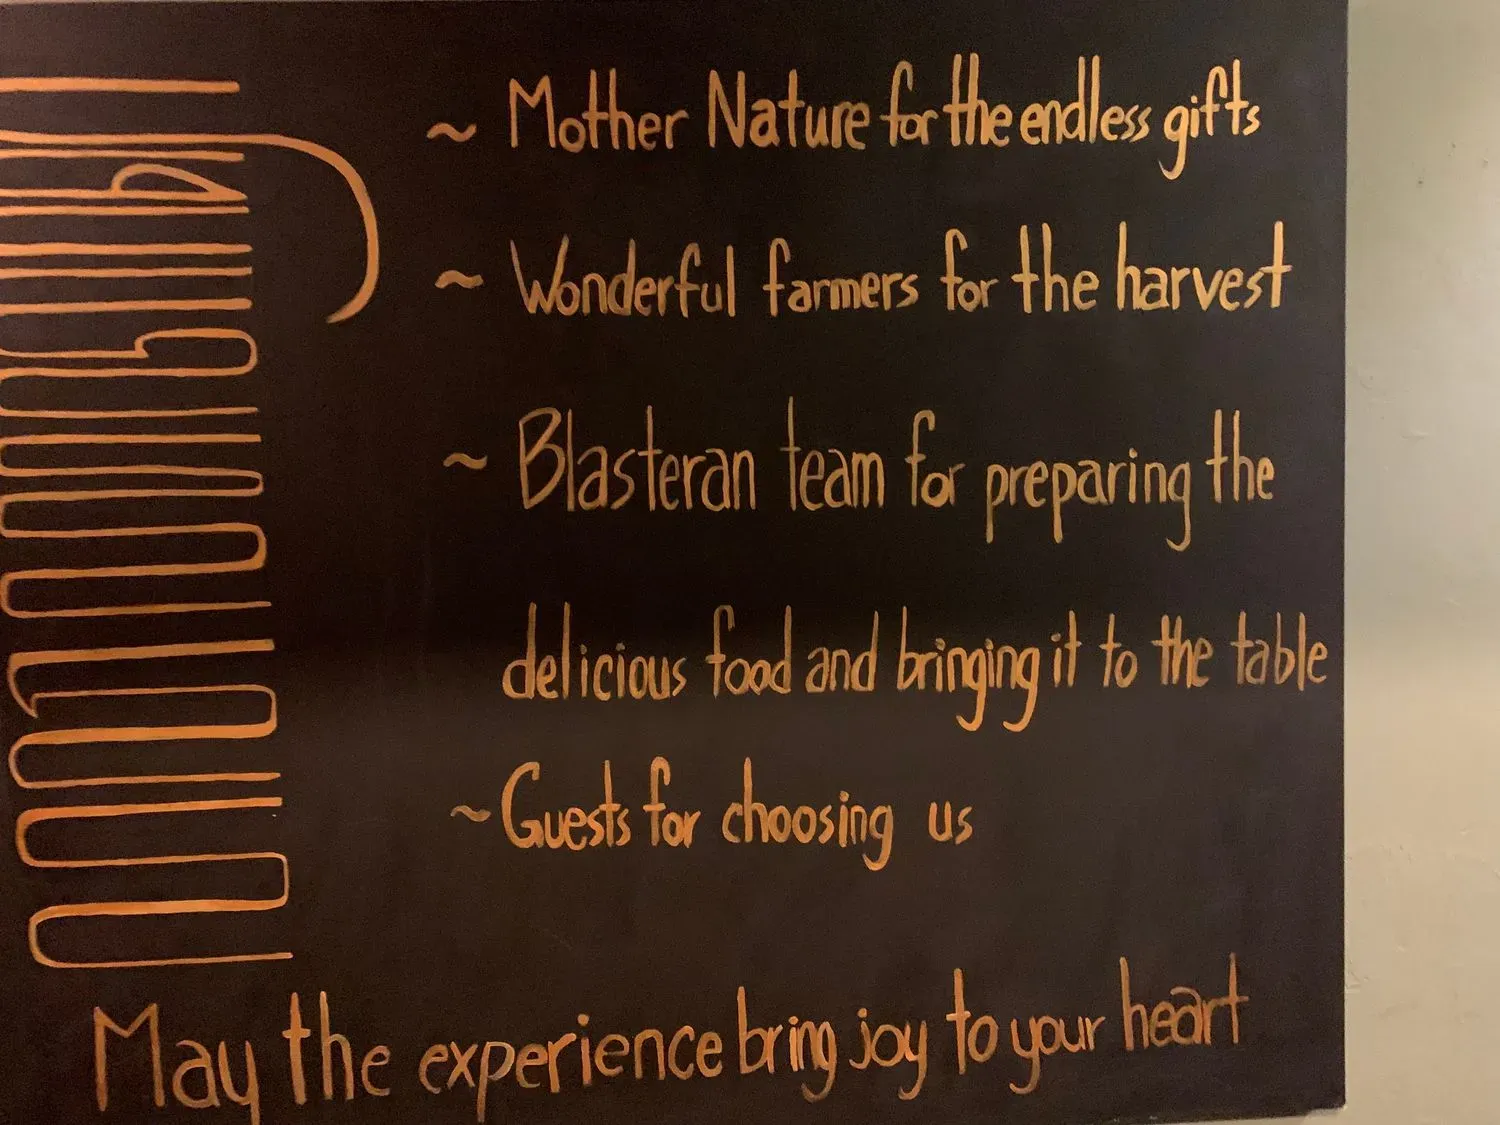 ~ Mother Nature for the endless gifts
~ Wonderful farmers for the harvest
~ Blasteran team for preparing the
delicious food and bringing it to the table
~ Guests for choosing us
May the experience bring joy to your heart